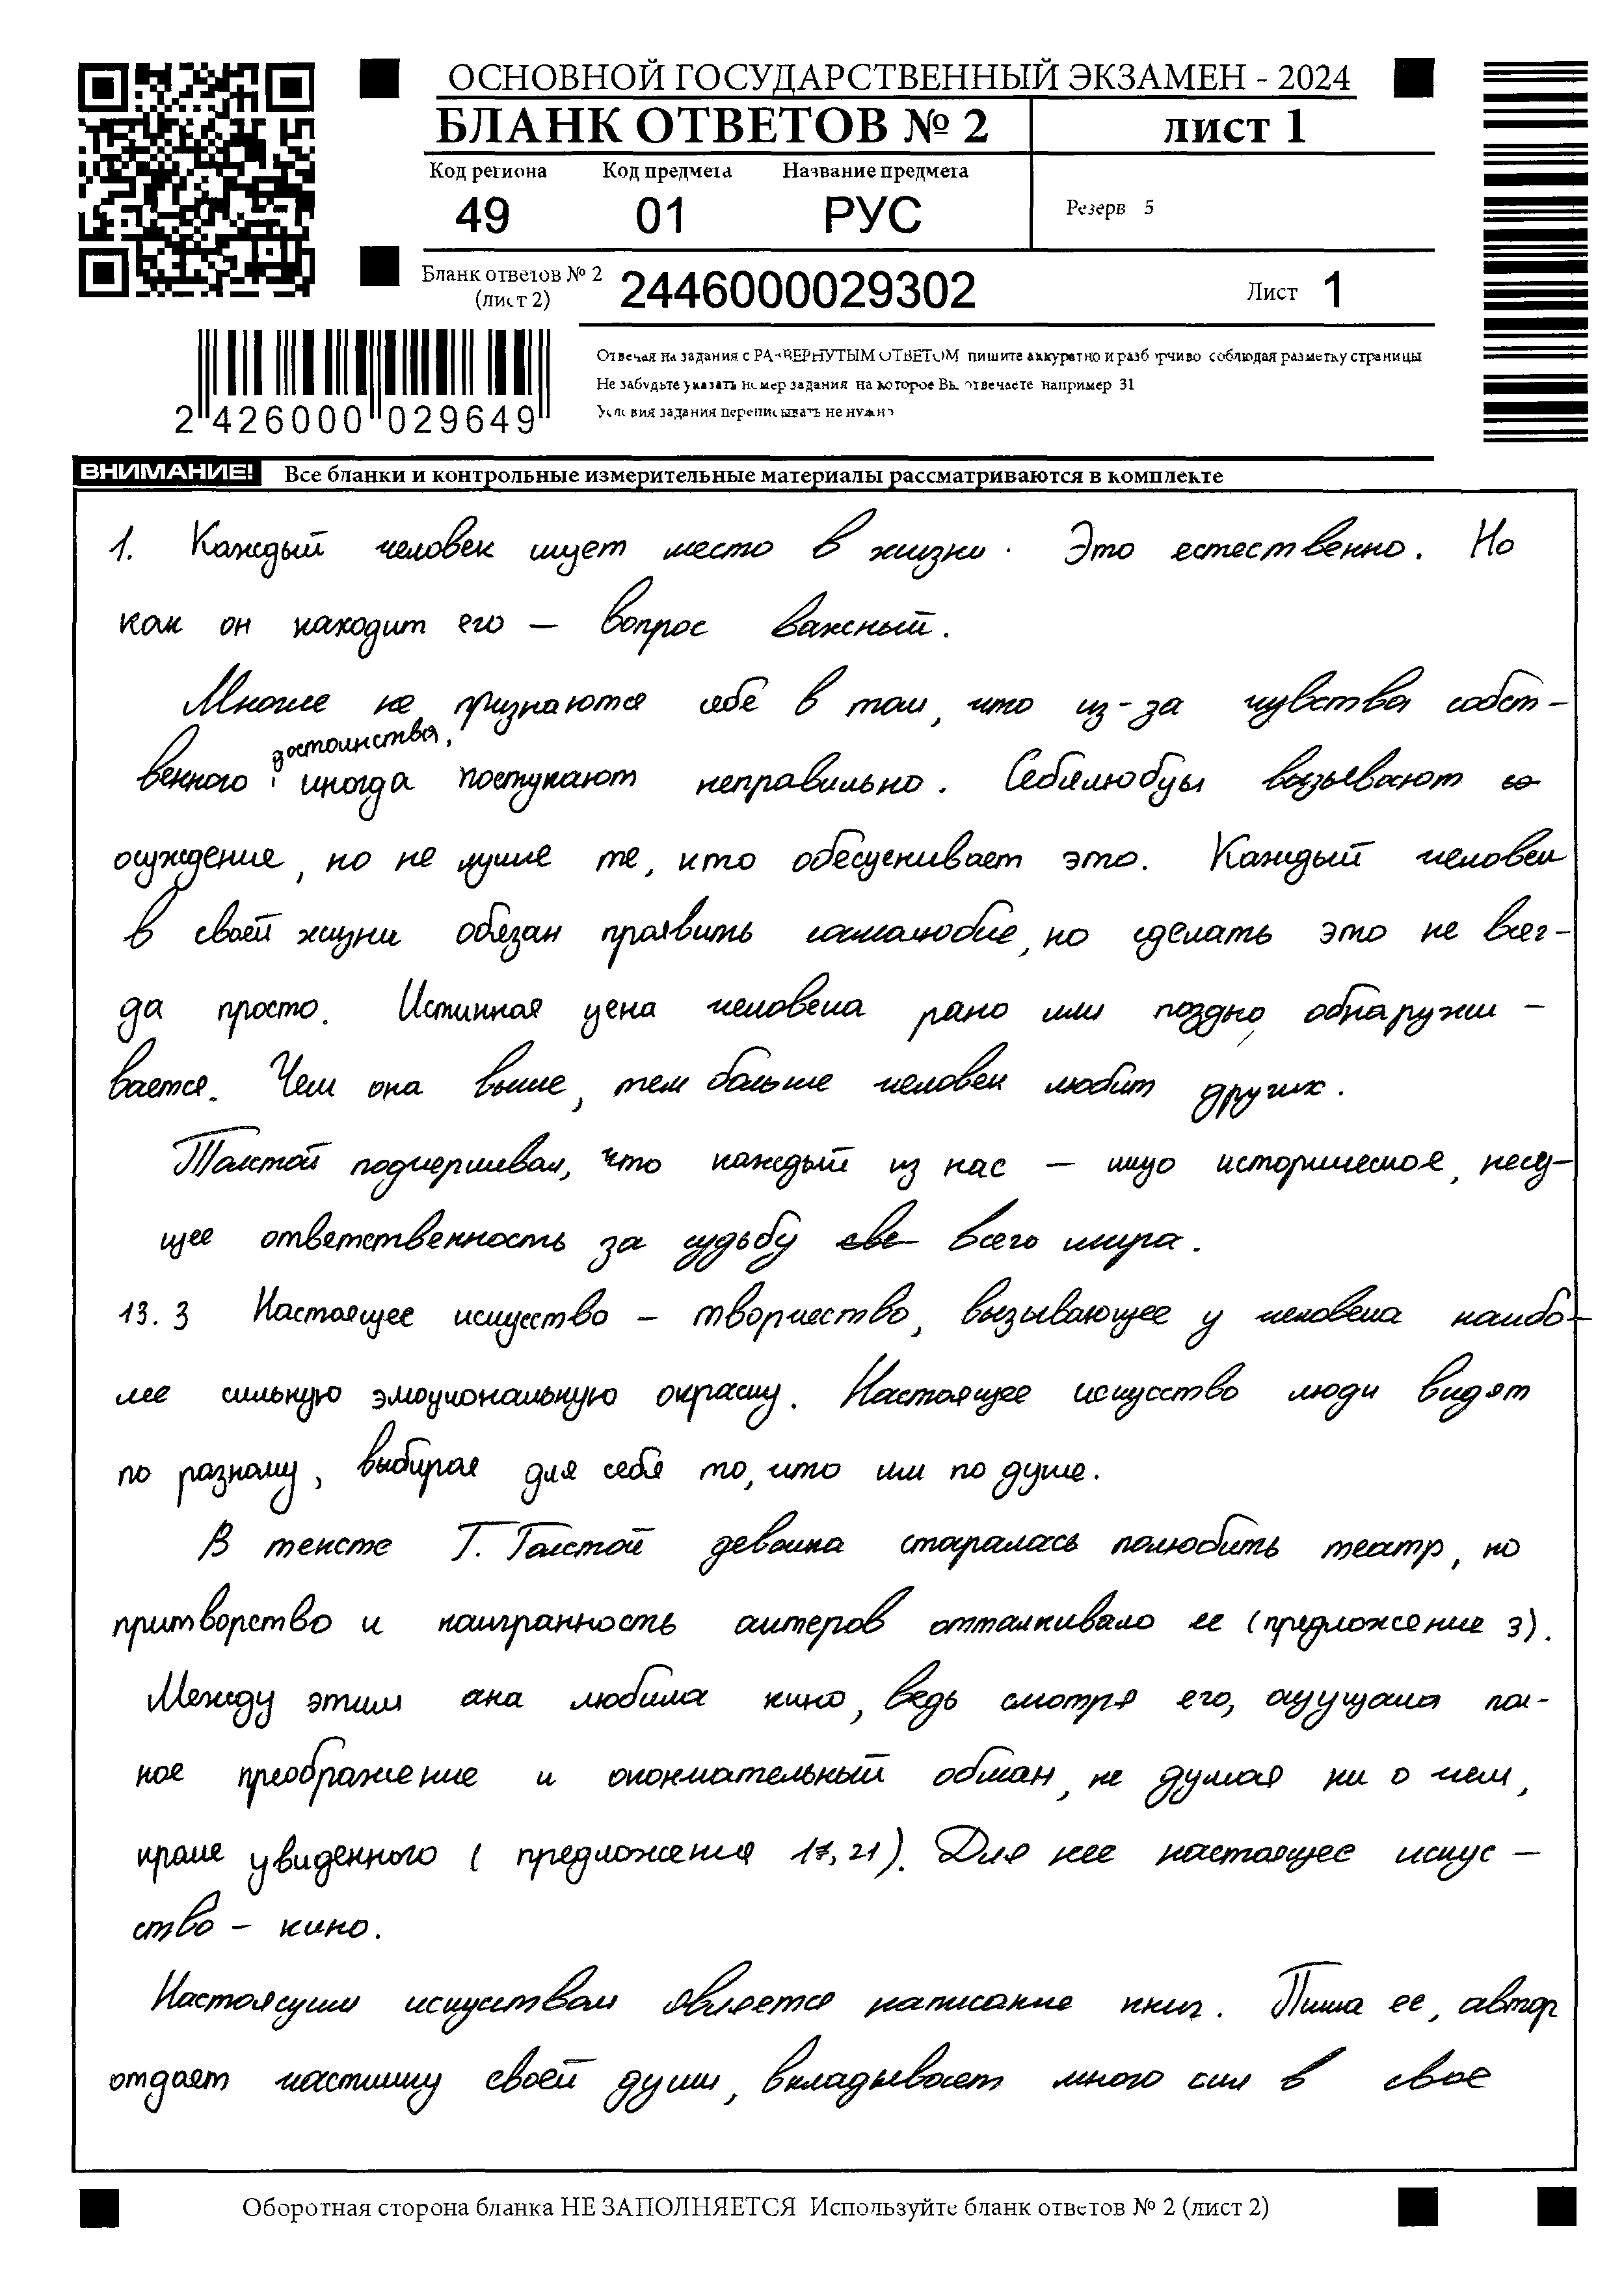 ОСНОВНОЙ ГОСУДАРСТВЕННЫЙ ЭКЗАМЕН - 2024
БЛАНК ОТВЕТОВ № 2
лист 1
Код региона Код предмета Название предмета
49 01 РУС
Резерв 5
Бланк ответов № 2
(лист 2)
2446000029302
Лист 1
Отвечая на задания с РАЗВЕРНУТЫМ ОТВЕТОМ пишите аккуратно и разборчиво соблюдая разметку страницы
Не забудьте указать номер задания на которое Вы отвечаете например 31
Условия задания переписывать не нужно
2 426000 029649
ВНИМАНИЕ! Все бланки и контрольные измерительные материалы рассматриваются в комплекте
1. Каждый человек ищет место в жизни. Это естественно. Но
как он находит его — вопрос важный.
Многие не признаются себе в том, что из-за чувства собст-
венного достоинства, иногда поступают неправильно. Себялюбцы вызывают со
осуждение, но не лучше те, кто обесценивает это. Каждый человек
в своей жизни обязан проявить самолюбие, но сделать это не всег-
да просто. Истинная цена человека рано или поздно, обнаружи-
вается. Чем она выше, тем больше человек любит других.
Толстой подчеркивал, что каждый из нас — лицо историческое, несу-
щее ответственность за судьбу све всего мира.
13.3 Настоящее искусство - творчество, вызывающее у человека наибо-
лее сильную эмоциональную окраску. Настоящее искусство люди видят
по разному, выбирая для себя то, что им по душе.
В тексте Т. Толстой девочка старалась полюбить театр, но
притворство и наигранность актеров отталкивало ее (предложение 3).
Между этим она любила кино, ведь смотря его, ощущала пол-
ное преображение и окончательный обман, не думая ни о чем,
кроме увиденного (предложения 17, 21). Для нее настоящее искус-
ство - кино.
Настоящим искусством является написание книг. Пиша ее, автор
отдает частичку своей души, вкладывает много сил в свое
Оборотная сторона бланка НЕ ЗАПОЛНЯЕТСЯ Используйте бланк ответов № 2 (лист 2)